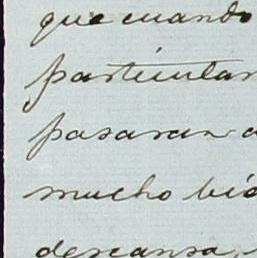 que cuando
particular
pasaran a
mucho bie
descansa,